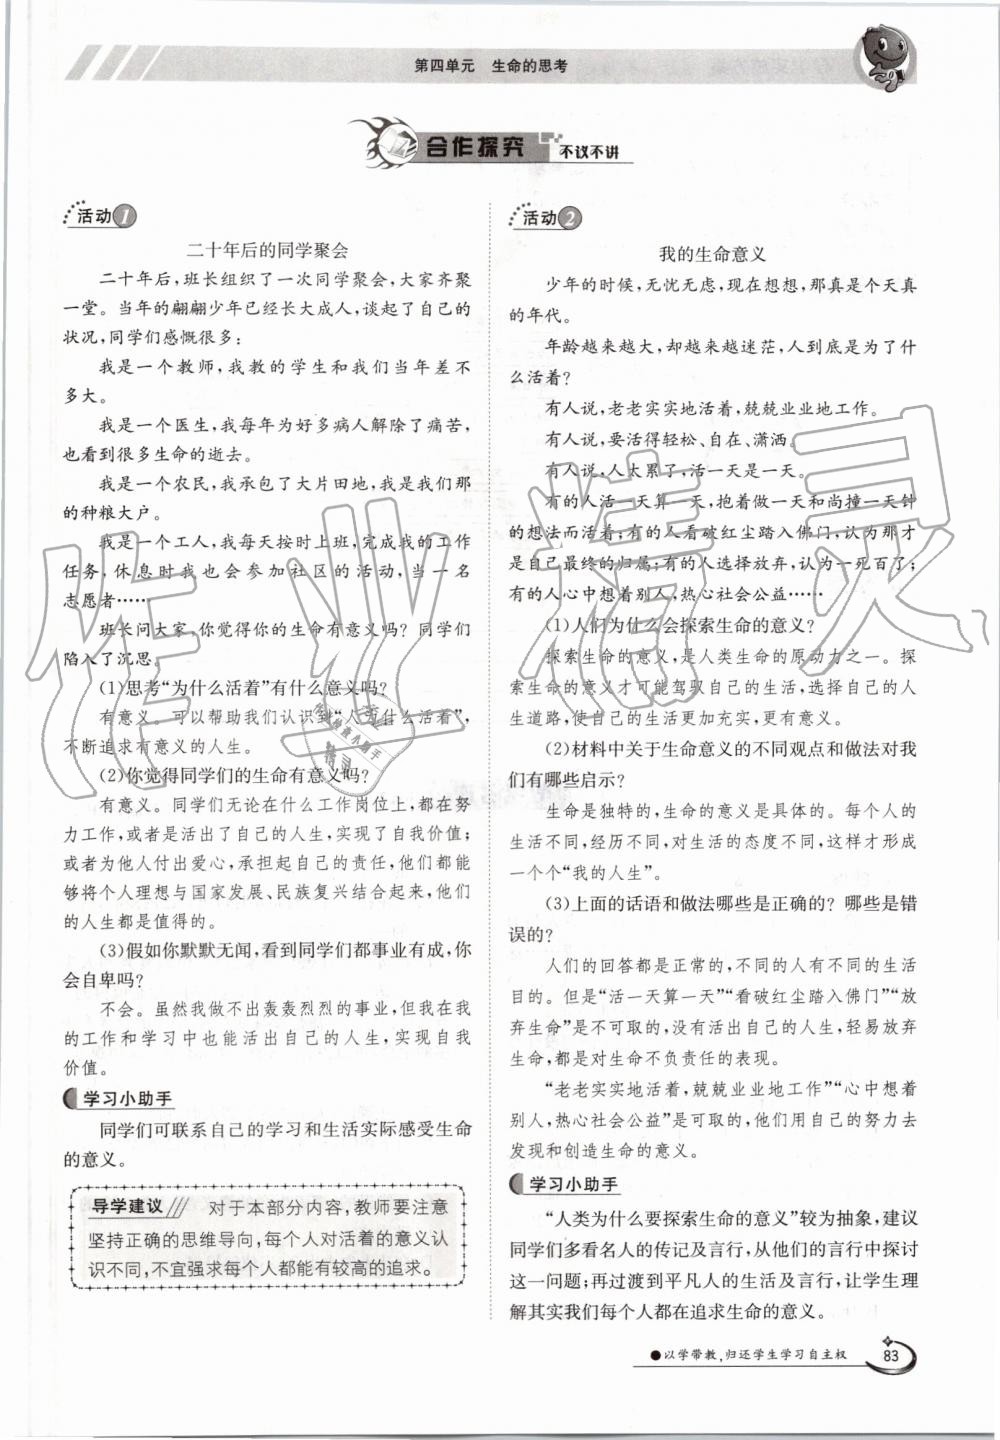 第四单元　生命的思考
合作探究 不议不讲
活动1
二十年后的同学聚会
二十年后,班长组织了一次同学聚会,大家齐聚
一堂。当年的翩翩少年已经长大成人,谈起了自己的
状况,同学们感慨很多:
我是一个教师,我教的学生和我们当年差不
多大。
我是一个医生,我每年为好多病人解除了痛苦,
也看到很多生命的逝去。
我是一个农民,我承包了大片田地,我是我们那
的种粮大户。
我是一个工人,我每天按时上班,完成我的工作
任务,休息时我也会参加社区的活动,当一名
志愿者……
班长问大家,你觉得你的生命有意义吗？同学们
陷入了沉思。
(1)思考“为什么活着”有什么意义吗?
有意义。可以帮助我们认识到“人为什么活着”,
不断追求有意义的人生。
(2)你觉得同学们的生命有意义吗?
有意义。同学们无论在什么工作岗位上,都在努
力工作,或者是活出了自己的人生,实现了自我价值;
或者为他人付出爱心,承担起自己的责任,他们都能
够将个人理想与国家发展、民族复兴结合起来,他们
的人生都是值得的。
(3)假如你默默无闻,看到同学们都事业有成,你
会自卑吗?
不会。虽然我做不出轰轰烈烈的事业,但我在我
的工作和学习中也能活出自己的人生,实现自我
价值。
学习小助手
同学们可联系自己的学习和生活实际感受生命
的意义。
导学建议 对于本部分内容,教师要注意
坚持正确的思维导向,每个人对活着的意义认
识不同,不宜强求每个人都能有较高的追求。
活动2
我的生命意义
少年的时候,无忧无虑,现在想想,那真是个天真
的年代。
年龄越来越大,却越来越迷茫,人到底是为了什
么活着?
有人说,老老实实地活着,兢兢业业地工作。
有人说,要活得轻松、自在、潇洒。
有人说,人太累了,活一天是一天。
有的人活一天算一天,抱着做一天和尚撞一天钟
的想法而活着;有的人看破红尘踏入佛门,认为那才
是自己最终的归属;有的人选择放弃,认为一死百了;
有的人心中想着别人,热心社会公益……
(1)人们为什么会探索生命的意义?
探索生命的意义,是人类生命的原动力之一。探
索生命的意义才可能驾驭自己的生活,选择自己的人
生道路,使自己的生活更加充实,更有意义。
(2)材料中关于生命意义的不同观点和做法对我
们有哪些启示?
生命是独特的,生命的意义是具体的。每个人的
生活不同,经历不同,对生活的态度不同,这样才形成
一个个“我的人生”。
(3)上面的话语和做法哪些是正确的？哪些是错
误的?
人们的回答都是正常的,不同的人有不同的生活
目的。但是“活一天算一天”“看破红尘踏入佛门”“放
弃生命”是不可取的,没有活出自己的人生,轻易放弃
生命,都是对生命不负责任的表现。
“老老实实地活着,兢兢业业地工作”“心中想着
别人,热心社会公益”是可取的,他们用自己的努力去
发现和创造生命的意义。
学习小助手
“人类为什么要探索生命的意义”较为抽象,建议
同学们多看名人的传记及言行,从他们的言行中探讨
这一问题;再过渡到平凡人的生活及言行,让学生理
解其实我们每个人都在追求生命的意义。
●以学带教,归还学生学习自主权 83
作业精灵